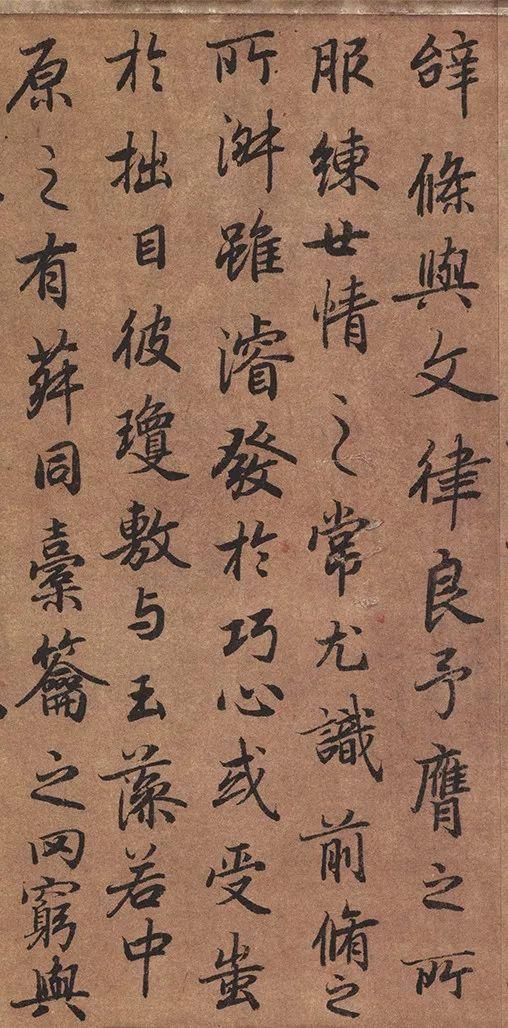 辝條與文律良予膺之所
服練世情之常尤識前脩之
所淑雖濬發於巧心或受蚩
於拙目彼瓊敷与玉藻若中
原之有菽同橐籥之罔窮與